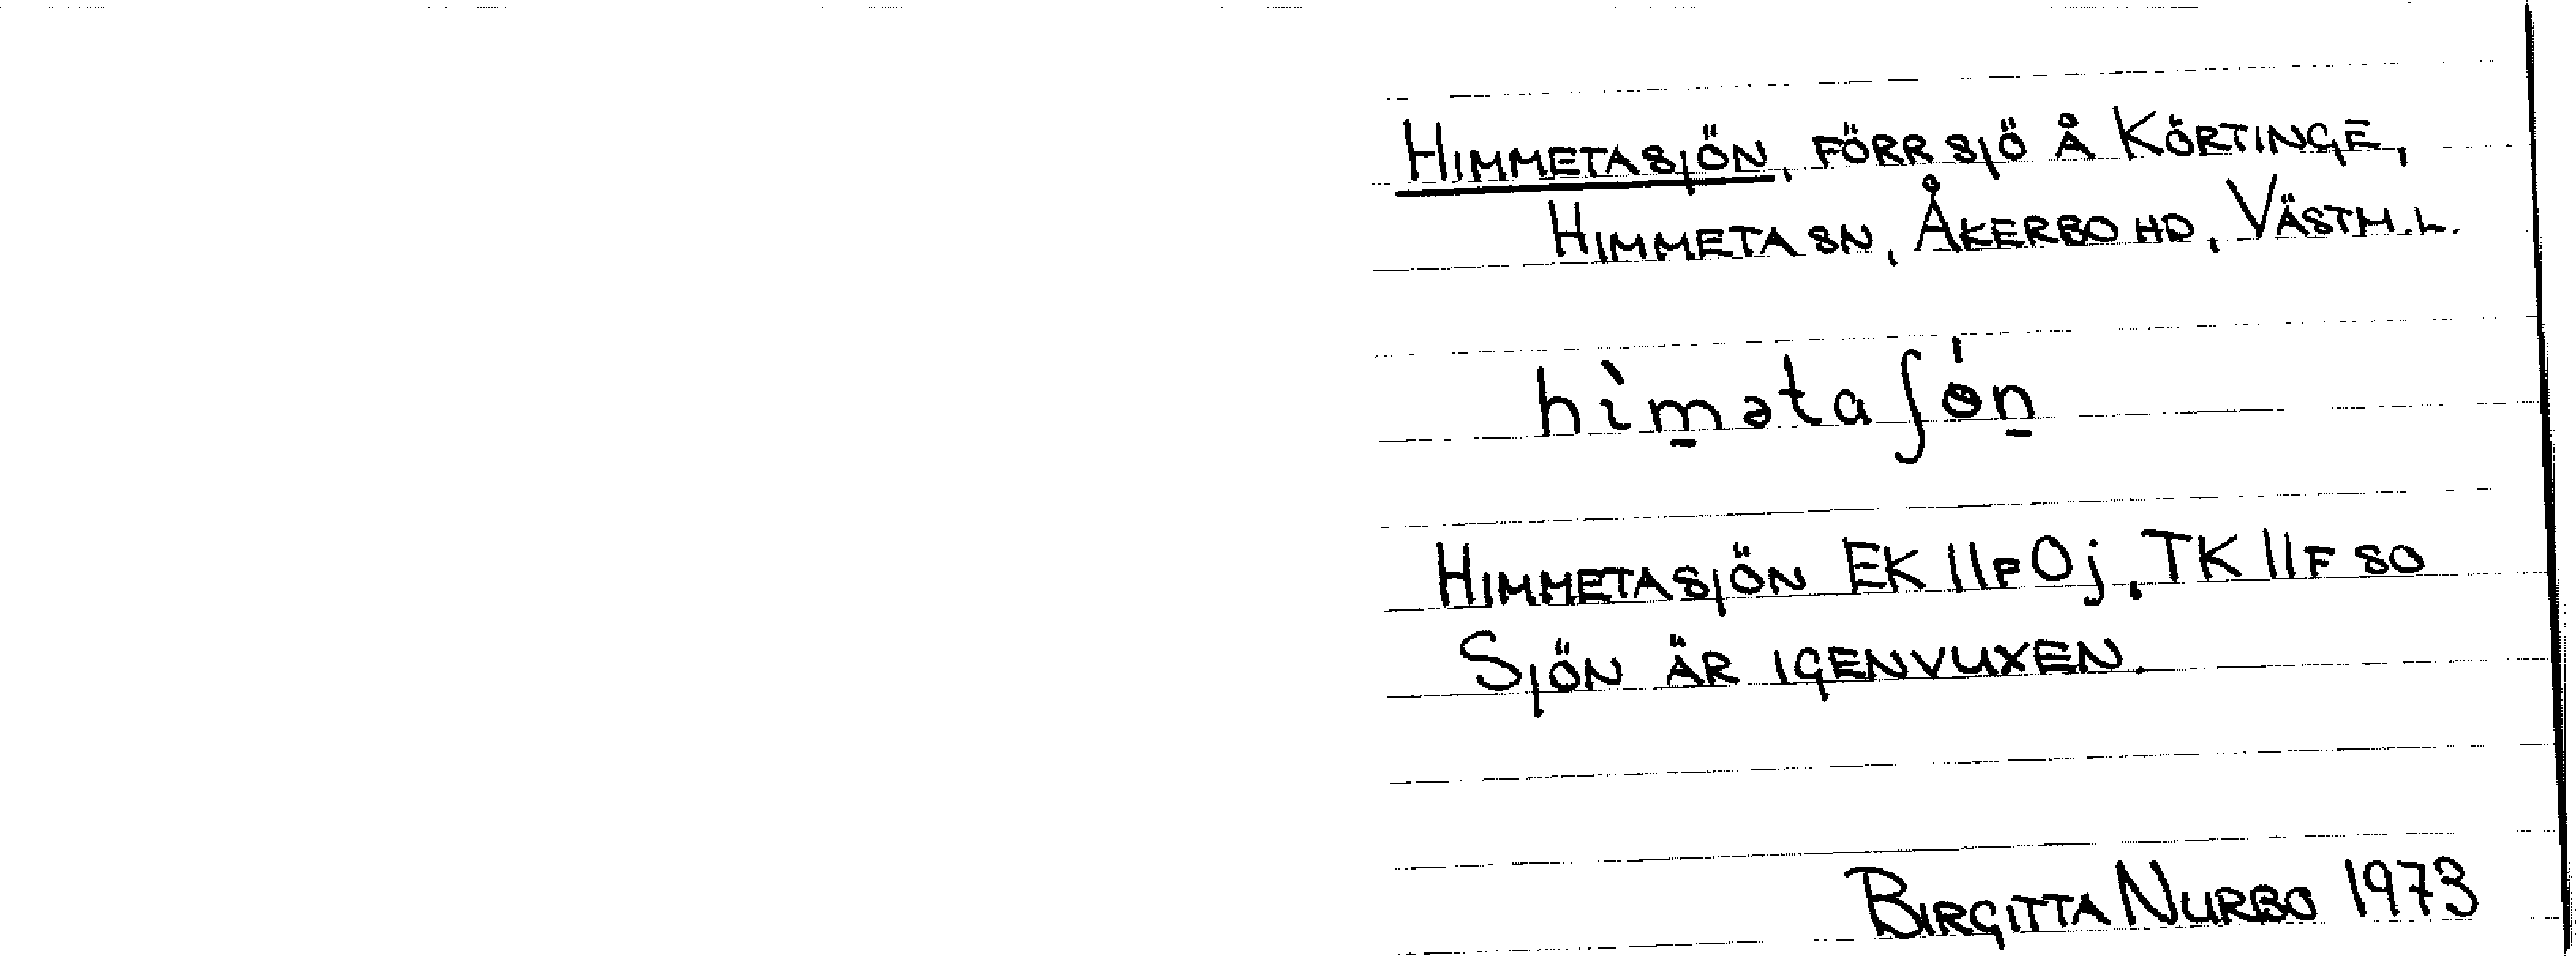 HIMMETASJÖN, FÖRR SJÖ Å KÖRTINGE,
HIMMETA SN, ÅKERBO HD, VÄSTM.L.
hìm̲əta ʃɵ́n̲
HIMMETASJÖN EK 11F0j, TK 11F SO
SJÖN ÄR IGENVUXEN.
BIRGITTA NURBO 1973